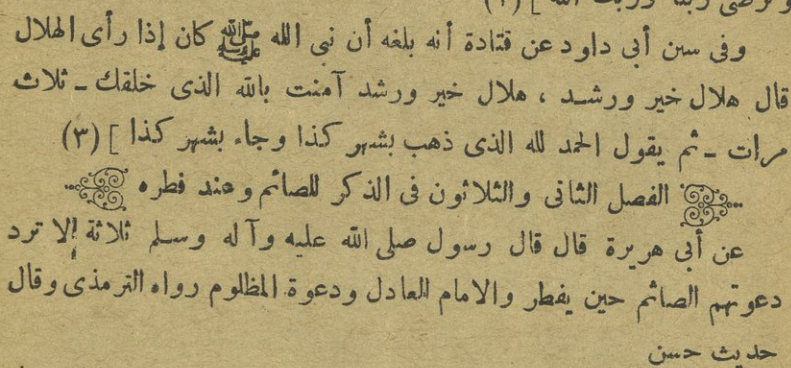 وترضى ربنا وربك الله ] (٢)
وفى سنن أبى داود عن قتادة أنه بلغه أن نبى الله ﷺ كان إذا رأى الهلال
قال هلال خير ورشد ، هلال خير ورشد آمنت بالله الذى خلقك ـ ثلاث
مرات ـ ثم يقول الحمد لله الذى ذهب بشهر كذا وجاء بشهر كذا ] (٣)
الفصل الثانى والثلاثون فى الذكر للصائم وعند فطره
عن أبى هريرة قال قال رسول صلى الله عليه وآله وسلم ثلاثة إلا ترد
دعوتهم الصائم حين يفطر والامام العادل ودعوة المظلوم رواه الترمذى وقال
حديث حسن